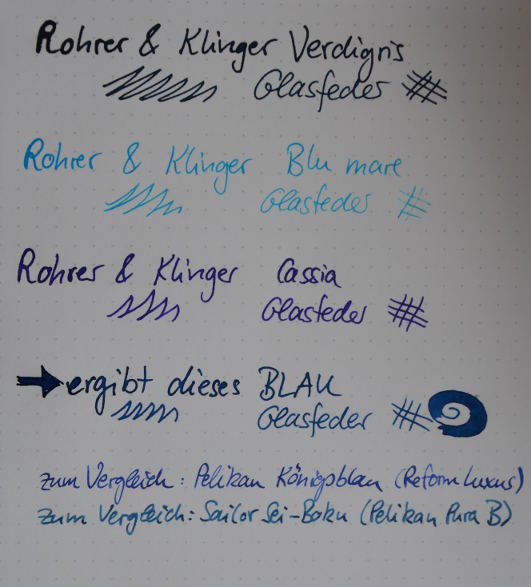 Rohrer & Klinger Verdigris
Glasfeder
Rohrer & Klinger Blu mare
Glasfeder
Rohrer & Klinger Cassia
Glasfeder
ergibt dieses BLAU
Glasfeder
zum Vergleich: Pelikan Königsblau (Reform Luxus)
zum Vergleich: Sailor Sei-Boku (Pelikan Pura B)